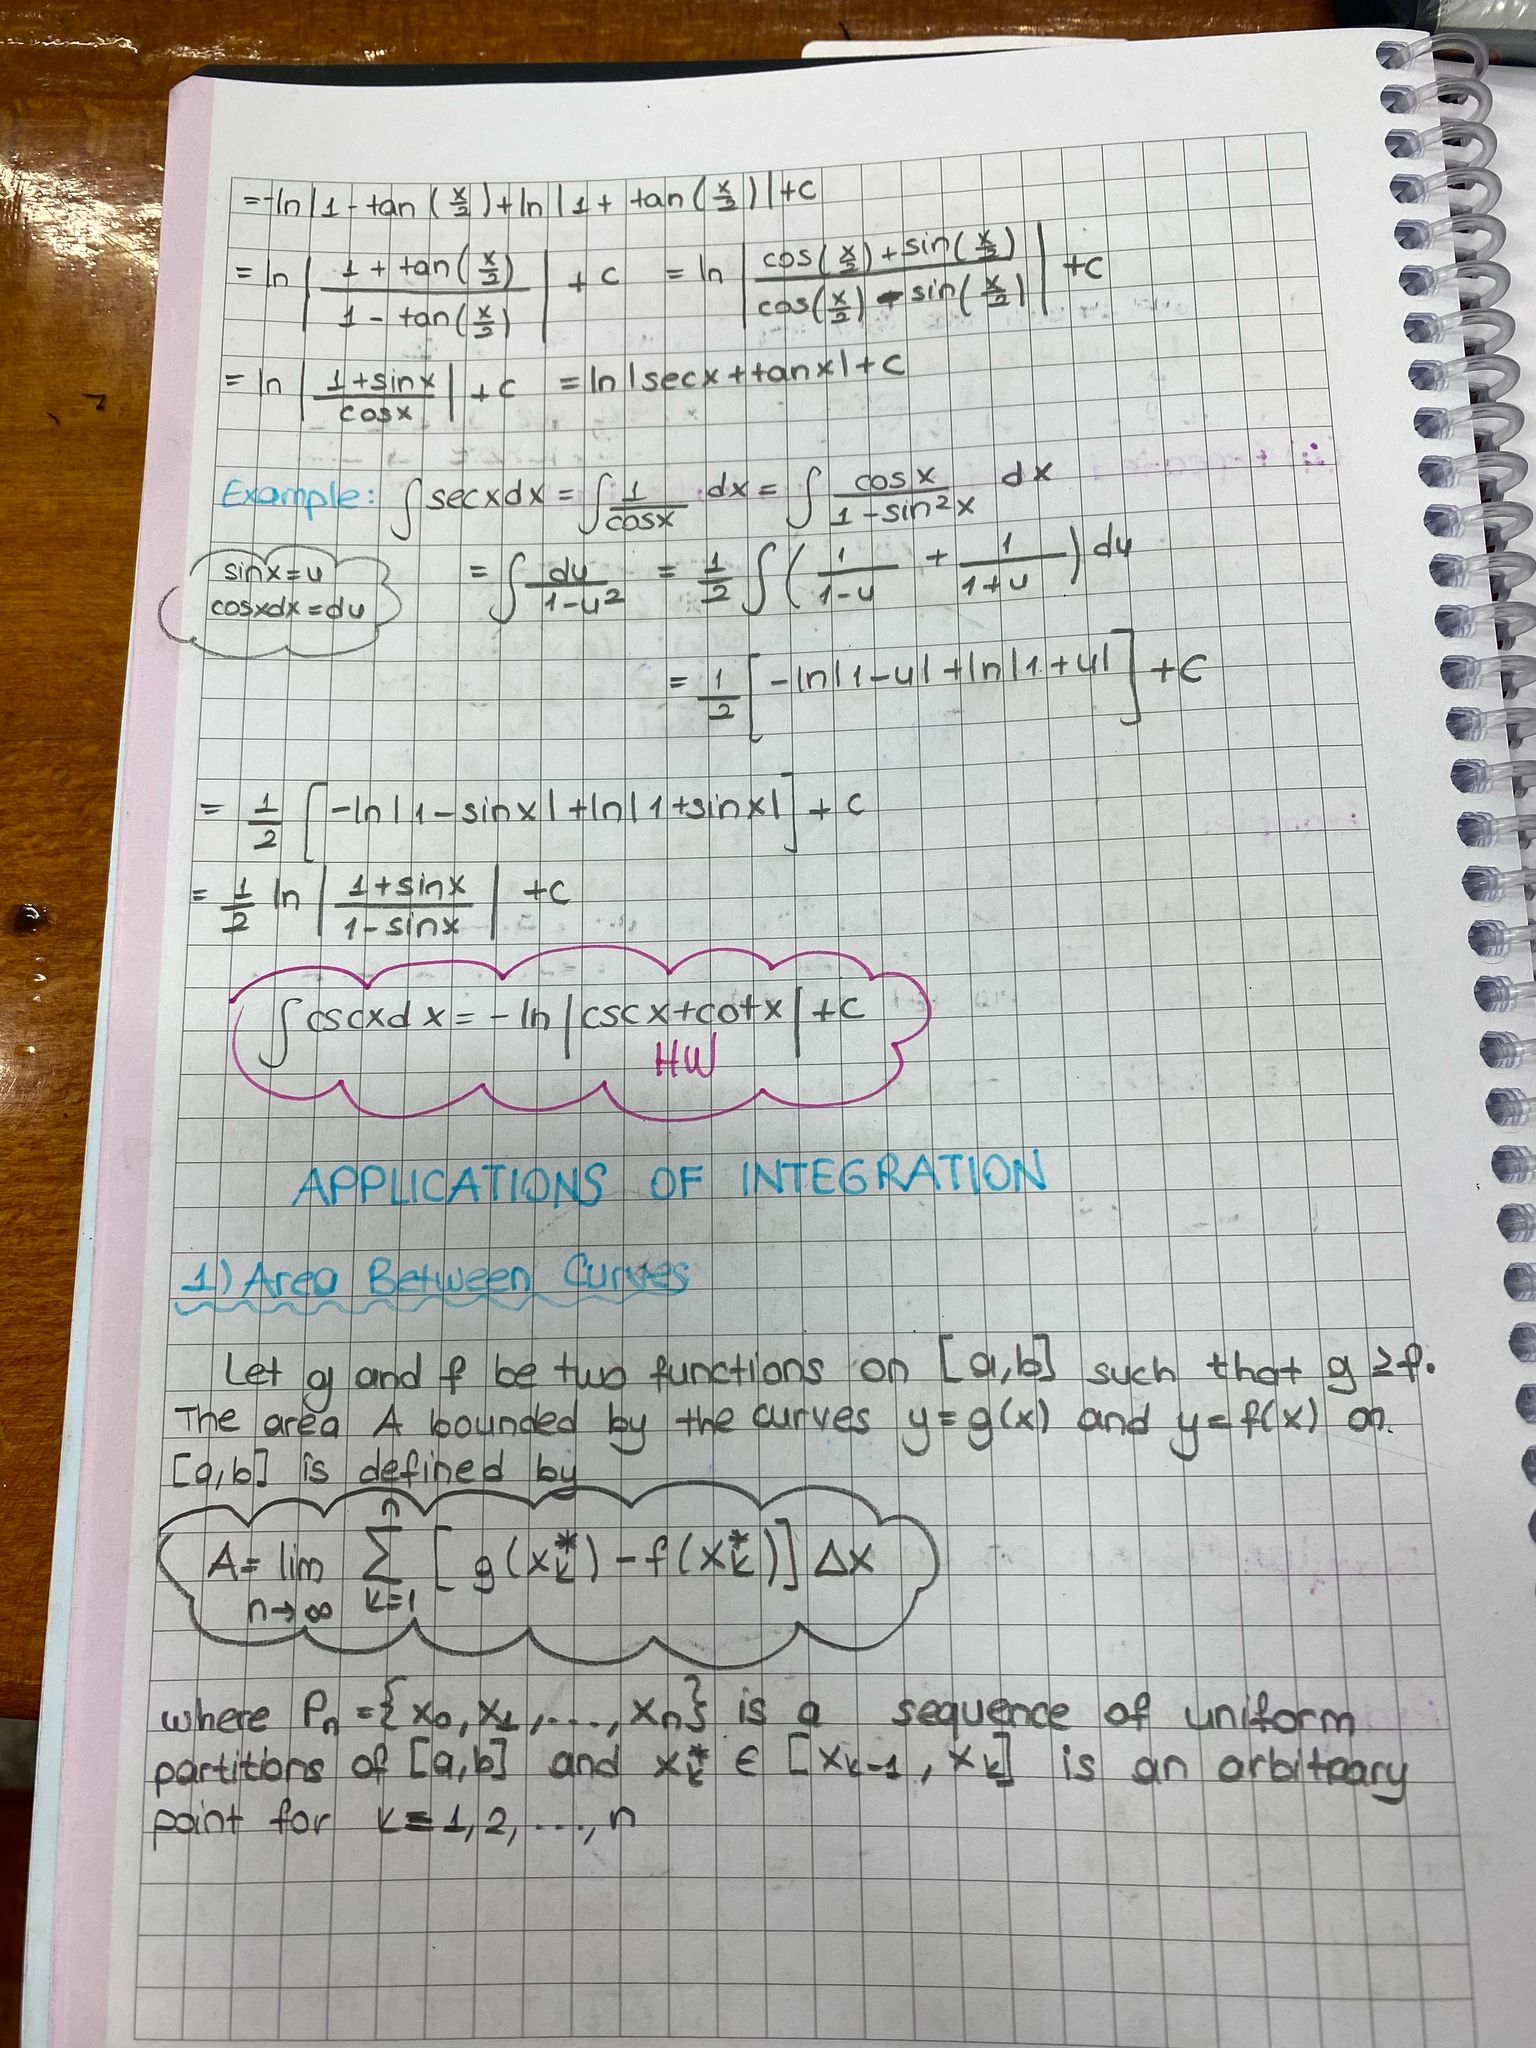 =-ln|1-tan(x/2)+ln|1+ tan(x/2)|+c
=ln|(1+tan(x/2))/(1-tan(x/2))|+c =ln|(cos(x/2)+sin(x/2))/(cos(x/2)-sin(x/2))|+c
=ln|(1+sinx)/cosx|+c =ln|secx+tanx|+c
Example: ∫secxdx=∫1/cosx dx=∫cosx/(1-sin²x) dx
sinx=u
cosxdx=du
=∫du/(1-u²) = 1/2∫(1/(1-u) + 1/(1+u))du
= 1/2[-ln|1-u|+ln|1+u|]+c
= 1/2[-ln|1-sinx|+ln|1+sinx|]+c
= 1/2 ln|(1+sinx)/(1-sinx)| +c
∫cscxdx=-ln|cscx+cotx|+c
HW
APPLICATIONS OF INTEGRATION
1) Area Between Curves
Let g and f be two functions on [a,b] such that g≥f.
The area A bounded by the curves y=g(x) and y=f(x) on
[a,b] is defined by
A= lim n→∞ ∑ k=1 n [g(xₖ*)-f(xₖ*)]Δx
where Pₙ={x₀,x₁,....,xₙ} is a sequence of uniform
partitions of [a,b] and xₖ* ∈ [xₖ₋₁, xₖ] is an arbitrary
point for k=1,2,....,n